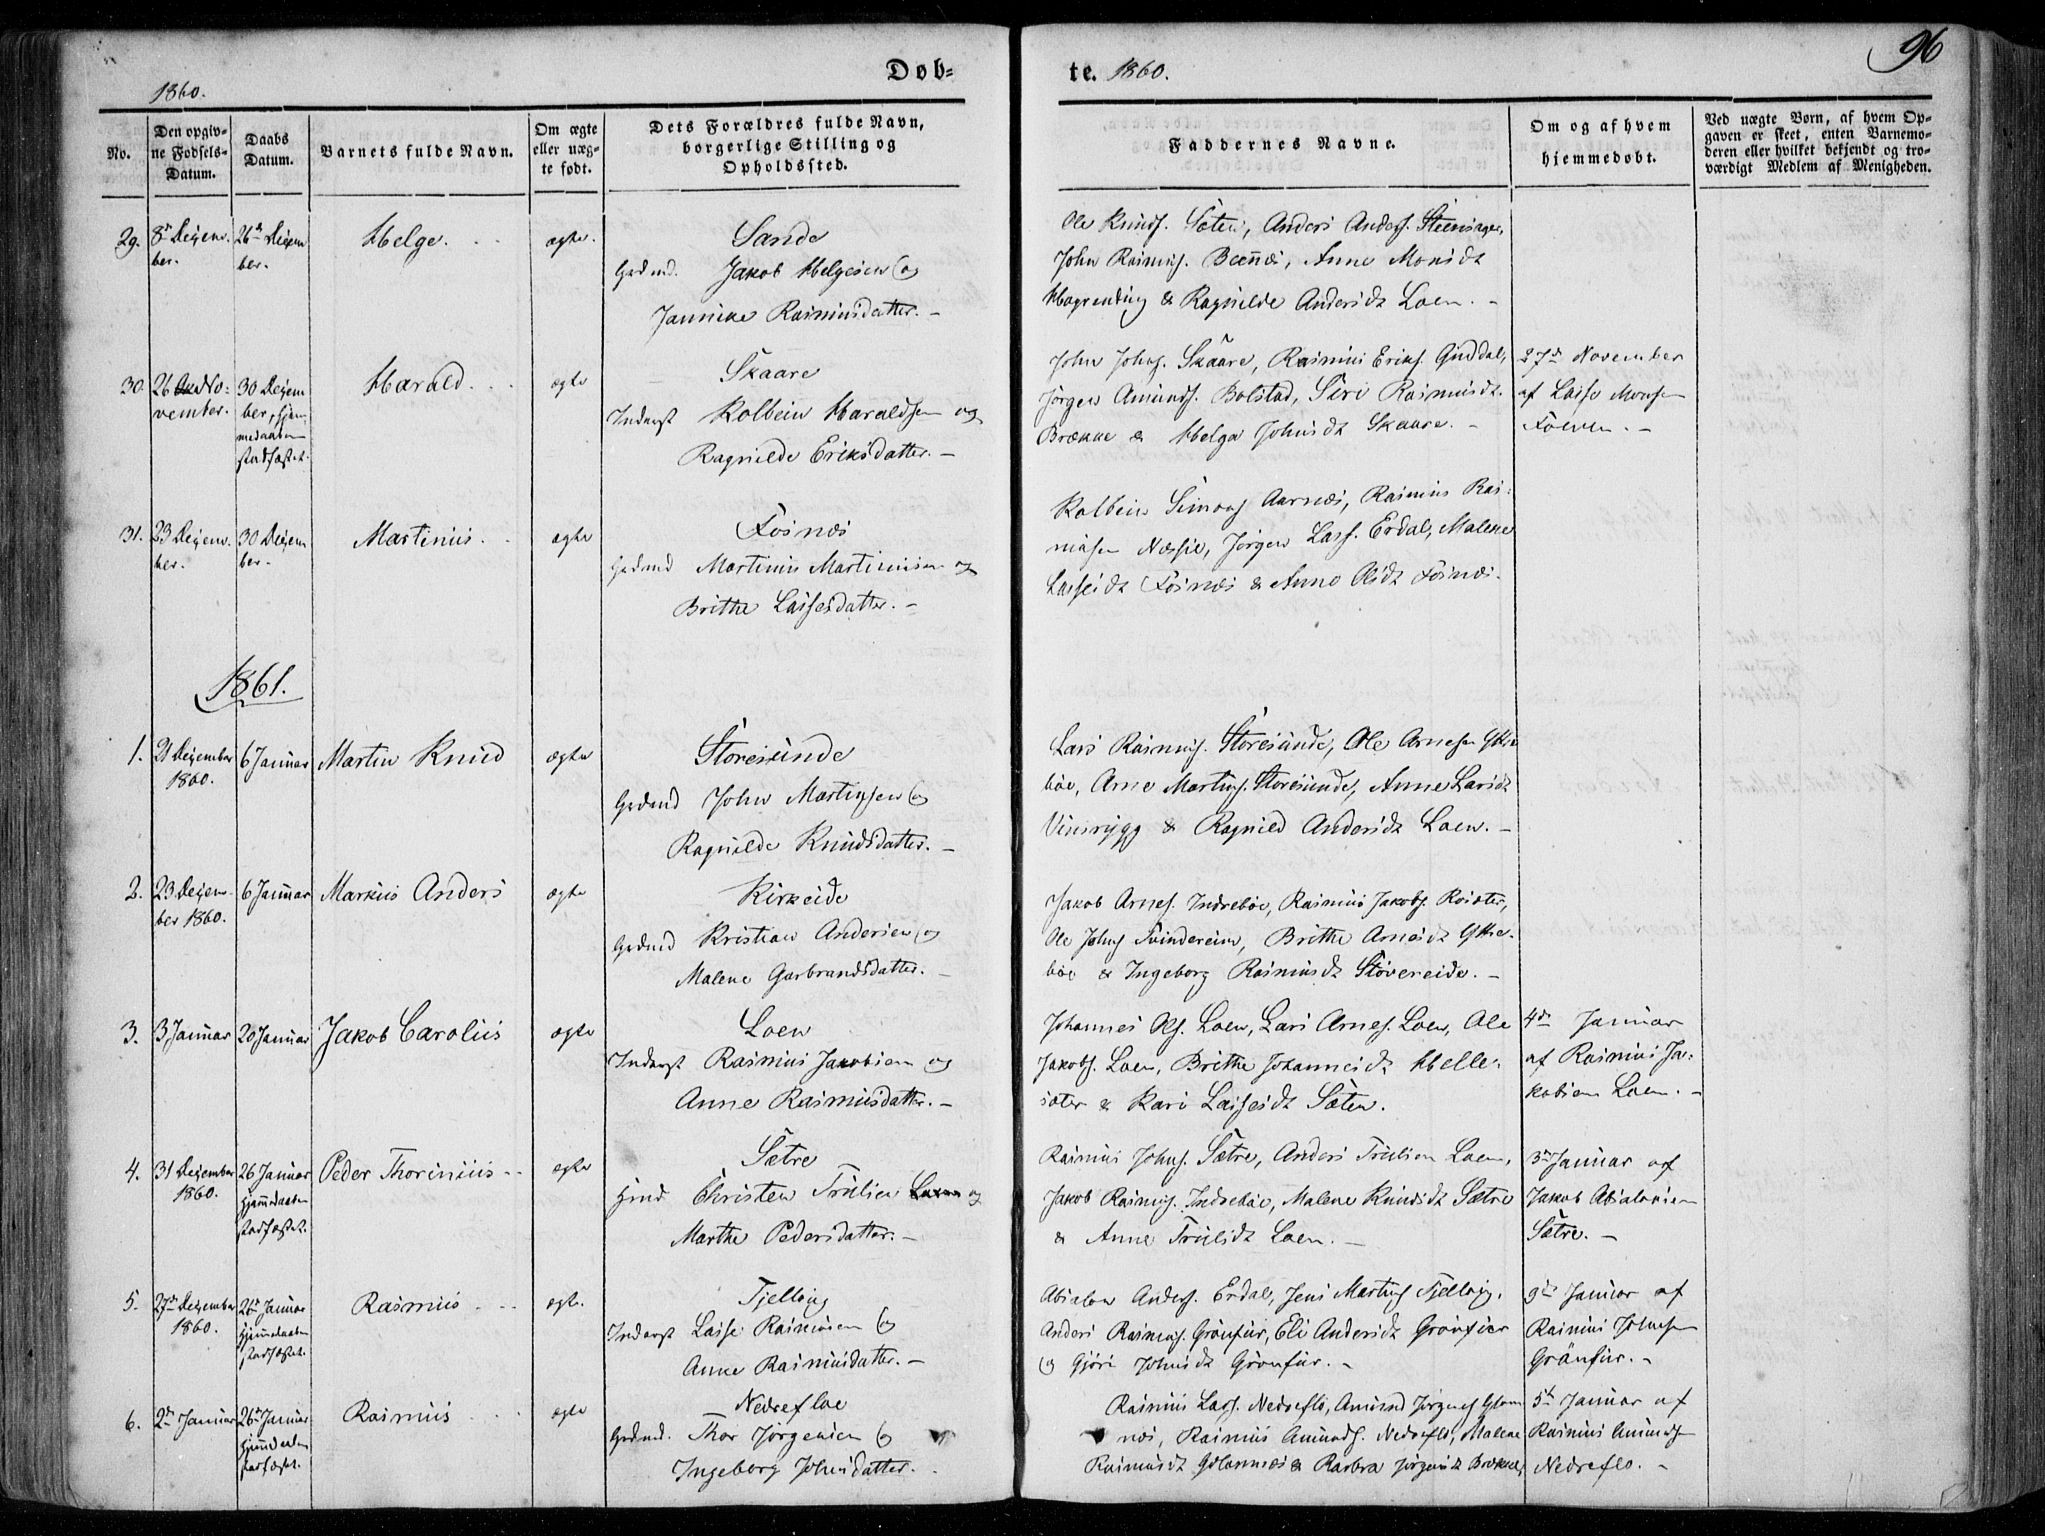 96
Døb-
te. 1860.
1860.
No.
Den opgiv-
ne Fødsels-
Datum.
Daabs
Datum.
Barnets fulde Navn.
Om ægte
eller uæg-
te født.
Dets Forældres fulde Navn,
borgerlige Stilling og
Opholdssted.
Faddernes Navne.
Om og af hvem
hjemmedøbt.
Ved uægte Børn, af hvem Op-
gaven er skeet, enten Barnemo-
deren eller hvilket bekjendt og tro-
værdigt Medlem af Menigheden.
29.
8de Dezem-
ber.
26de Dezem
ber.
Helge.
ægte.
Sande
Grdmd. Jakob Helgesen og
Jannike Rasmusdatter. –
Ole Knuds. Sæten, Anders Anders.
John Rasmus. Anne Monsdt
& Ragnilde Andersdt Loen. –
30.
26 No-
vember.
30 Dezem
ber, hjem-
medaaben
stadfæstet.
Harald.
ægte
Skaare
Inderst Kolbein Haraldsen og
Ragnilde Eriksdatter. –
John Johns. Skaare, Rasmus Eriks. Guddal,
Jørgen Amunds. Bolstad, Siri Rasmusdt.
Brække & Helga Johnsdt Skaare. –
27de November
af Lasse Monsen
31.
23 Dezem-
ber.
30 Dezem
ber.
Martinus.
ægte
Fosnæs
Grdmd Martinus Martinusen og
Brithe Lassesdatter. –
Kolbein Simons Aarnæs, Rasmus Ras-
musen Næssie, Jørgen Lass. Erdal, Malene
Lassesdt Fosnæs & Anne Olsdt Fosnæs.
1861.
1.
21 Dezember
1860.
6 Januar
Martin Knud
ægte
Storesunde
Grdmd John Martinsen og
Ragnilde Knudsdatter. –
Lars Rasmus. Storesunde, Ole Arnesen Ytre
bøe, Arne Martins. Storesunde, Anne Larsdt
Vinsrygg & Ragnild Andersdt Loen. –
2.
23 Dezem-
ber 1860.
6 Januar
Markus Anders
ægte
Kirkeide
Grdmd Kristian Andersen og
Malene Garbrandsdatter. –
Jakob Arnes. Indrebøe, Rasmus Jakobs.
Ole Johns Tvindereim, Brithe Arnesdt Ytre-
bøe & Ingeborg Rasmusdt Støvereide. –
3.
3 Januar
20 Januar
Jakob Carolus
ægte
Loen
Inderst Rasmus Jakobsen og
Anne Rasmusdatter. –
Johannes Ols. Loen, Lars Arnes. Loen, Ole
Jakobs. Loen, Brithe Johannesdt Helle-
sæter & Kari Lassesdt Sæten.
4de Januar
af Rasmus Ja-
kobsen Loen. –
4.
31 Dezember
1860.
26 Januar
hjemmedaaben
stadfæstet.
Peder Thorinius
ægte
Sætre
Christen Trulsen og
Marthe Pedersdatter. –
Rasmus Johns. Sætre, Anders Trulsen Loen,
Jakob Rasmus. Indrebøe, Malene Knudsdt Sætre
& Anne Trulsdt Loen. –
3de Januar af
Jakob Absalonsen
Sætre. –
5.
27de Dezember
1860.
26de Januar
hjemmedaaben
stadfæstet.
Rasmus
ægte.
Tjelloug
Inderst Lasse Rasmusen og
Anne Rasmusdatter. –
Absalon Anders. Erdal, Jens Martins Tjelloug,
Anders Rasmus. Grønfur, Eli Andersdt Grønfur
og Gjøri Johnsdt Grønfur. –
9de Januar af
Rasmus Johnsen
Grønfur. –
6.
2de Januar
26de Januar
hjemmedaaben
stadfæstet.
Rasmus
ægte
Nedrefloe
Grdmd. Thor Jørgensen og
Ingeborg Johnsdatter.
Rasmus Lass. Nedreflo, Amund Jørgens Glom
næs, Rasmus Amunds. Nedreflo, Malene
Rasmusdt & Barbra Jørgensdt Brække,
5te Januar af
Rasmus Amundsen
Nedreflo. –